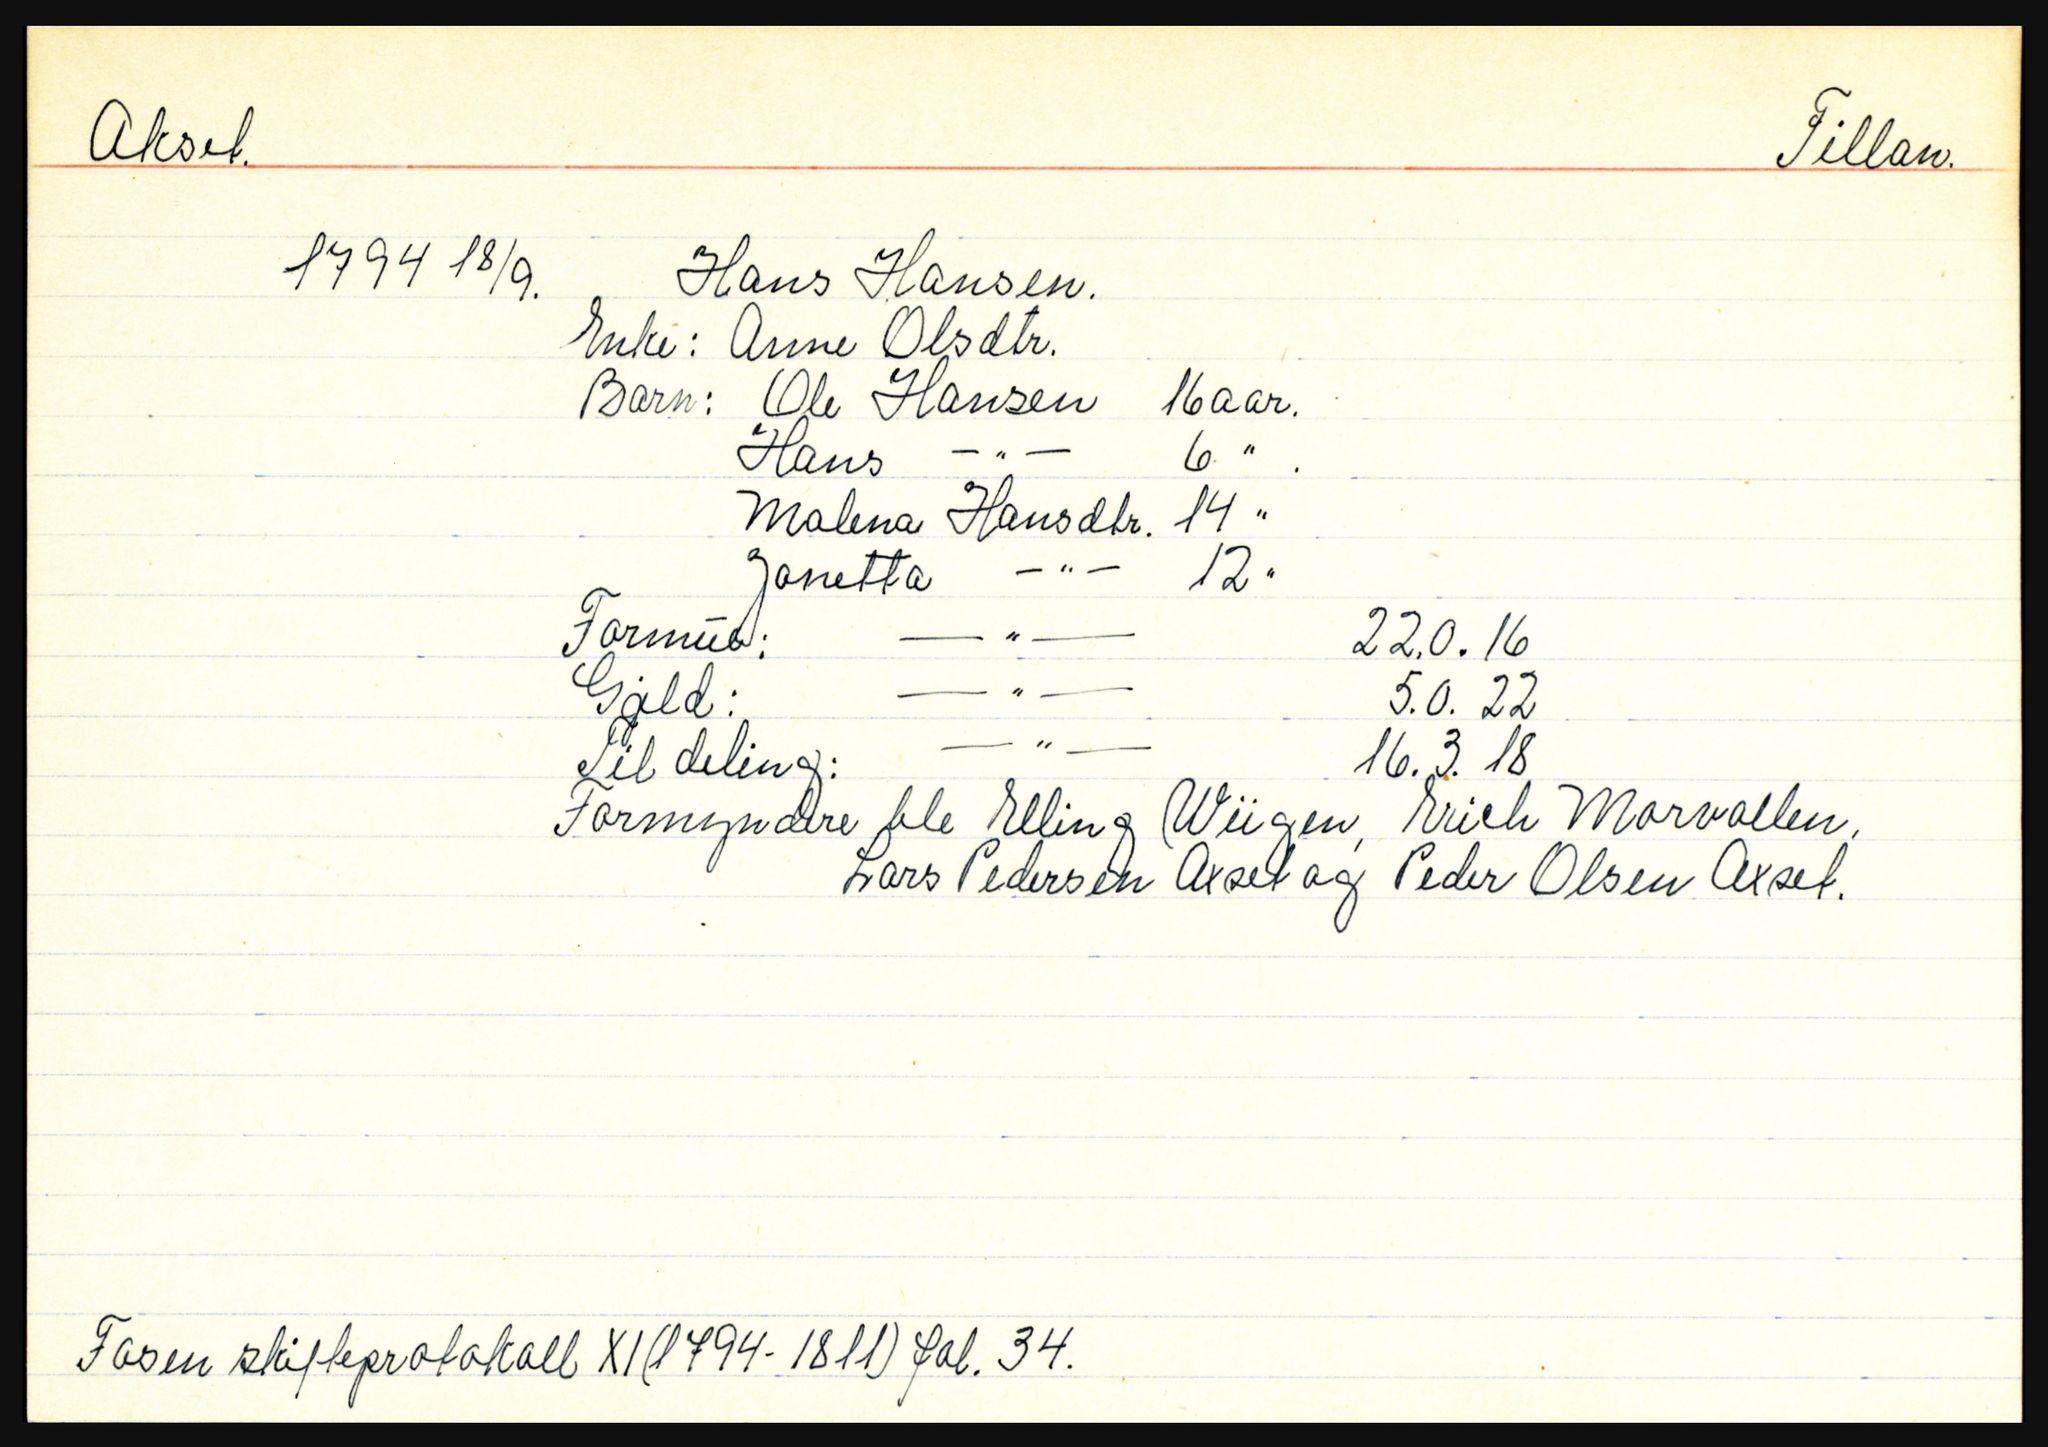 Akset. Fillan.
1794 18/9. Hans Hansen.
Enke: Anne Olsdtr.
Barn: Ole Hansen 16 aar.
Hans —"— 6 " .
Malena Hansdtr. 14 "
Janetta —"— 12 "
Formue: —"— 22.0.16
Gjeld: —"— 5.0.22
Til deling: —"— 16.3.18
Formyndere ble Elling Wiigen, Erich Morvollen,
Lars Pedersen Axset og Peder Olsen Axset.
Fosen skifteprotokoll XI (1794-1811) fol. 34.